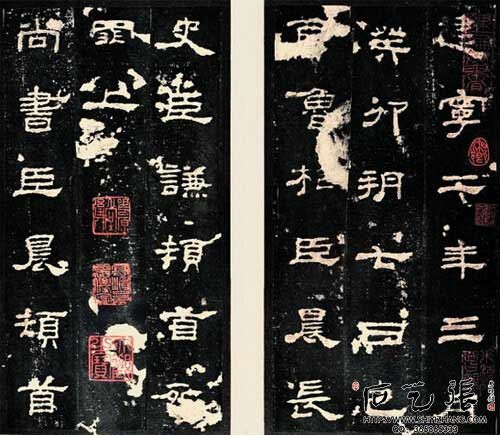 建寧二年三
癸卯朔七日
酉魯相臣晨長
史臣謙頓首死
罪上
尚書臣晨頓首